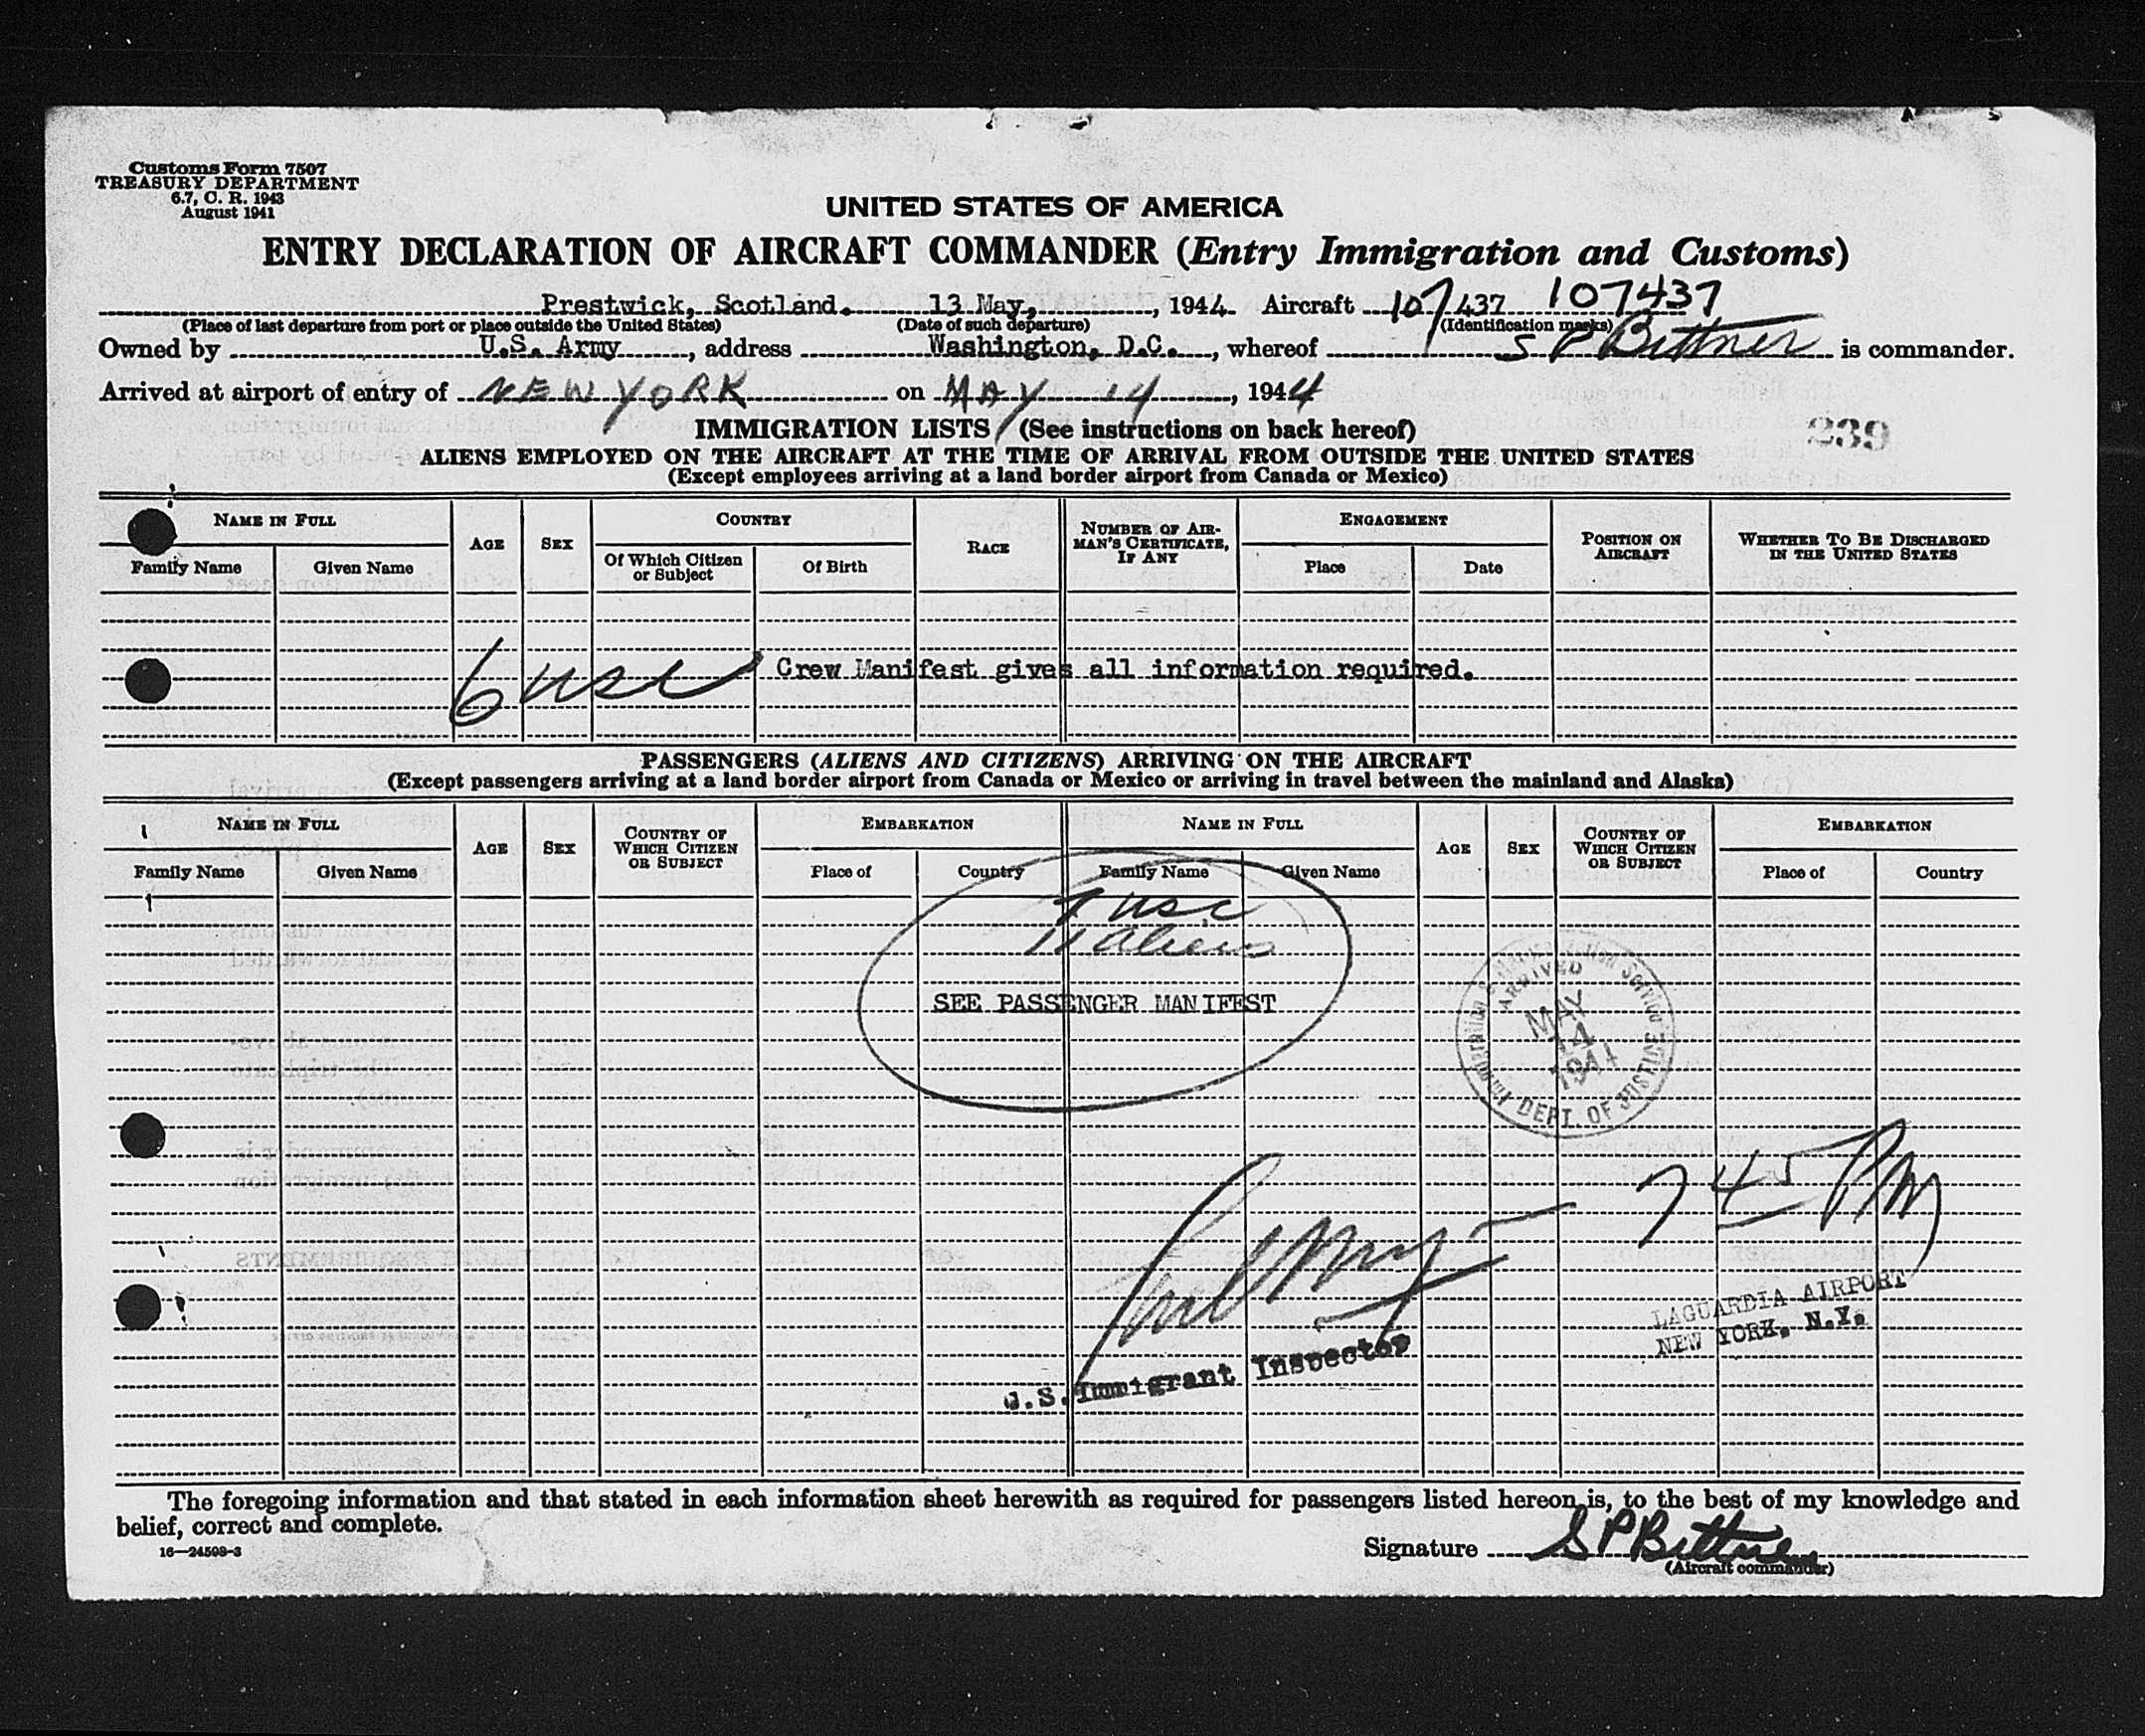 Customs Form 7507
TREASURY DEPARTMENT
6.7, C. R. 1943
August 1941
UNITED STATES OF AMERICA
ENTRY DECLARATION OF AIRCRAFT COMMANDER (Entry Immigration and Customs)
Prestwick, Scotland. 13 May, , 1944 Aircraft 107437 107437
(Place of last departure from port or place outside the United States) (Date of such departure) (Identification marks)
Owned by U.S. Army , address Washington, D.C. , whereof S P Bittner is commander.
Arrived at airport of entry of NEW YORK on MAY 14 , 1944
IMMIGRATION LISTS (See instructions on back hereof) 239
ALIENS EMPLOYED ON THE AIRCRAFT AT THE TIME OF ARRIVAL FROM OUTSIDE THE UNITED STATES
(Except employees arriving at a land border airport from Canada or Mexico)
NAME IN FULL AGE SEX COUNTRY RACE NUMBER OF AIRMAN'S CERTIFICATE, IF ANY ENGAGEMENT POSITION ON AIRCRAFT WHETHER TO BE DISCHARGED IN THE UNITED STATES
Family Name Given Name Of Which Citizen or Subject Of Birth Place Date
6 usc Crew Manifest gives all information required.
PASSENGERS (ALIENS AND CITIZENS) ARRIVING ON THE AIRCRAFT
(Except passengers arriving at a land border airport from Canada or Mexico or arriving in travel between the mainland and Alaska)
NAME IN FULL AGE SEX COUNTRY OF WHICH CITIZEN OR SUBJECT EMBARKATION NAME IN FULL AGE SEX COUNTRY OF WHICH CITIZEN OR SUBJECT EMBARKATION
Family Name Given Name Place of Country Family Name Given Name Place of Country
usc
aliens
SEE PASSENGER MANIFEST
Immigration & Naturalization Service
ARRIVED
MAY
14
1944
DEPT. OF JUSTICE
7 45 PM
LAGUARDIA AIRPORT
NEW YORK, N.Y.
U.S. Immigrant Inspector
The foregoing information and that stated in each information sheet herewith as required for passengers listed hereon is, to the best of my knowledge and
belief, correct and complete.
16—24598-3
Signature S P Bittner
(Aircraft commander)